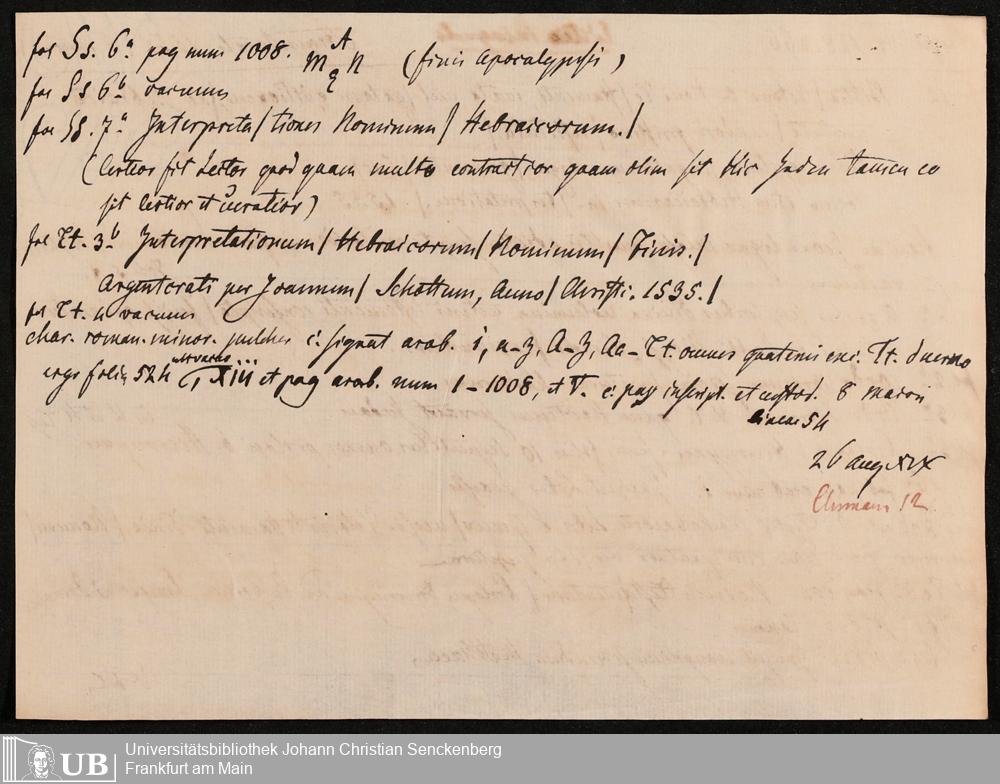 fol Ss. 6a pag num 1008. m A n (finis Apocalypsis)
fol Ss 6b vacuum
fol 7a Interpreta/tiones Nominum/ Hebraicorum./
(certior sit Lector quod quam multo contractior quam olim sit hic Index tamen eo
sit certior et curatior)
fol Tt. 3b Interpretationum/ Hebraicorum/ Nominum/ Finis./
Argentorati per Joannem/ Schottum, Anno/ Christi. 1535./
fol Tt. 4 vacuum
char. roman. minor. pulcher c. signat arab. 1, a-z, A-Z, Aa-Tt. omnes quaterni exc. Tt. duerno
ergo folia 524 XIII et pag arab. num 1-1008, c. pag inscript. et custod. 8 maiori
lineae 54
26 aug XIX
12.
Universitätsbibliothek Johann Christian Senckenberg
Frankfurt am Main
UB